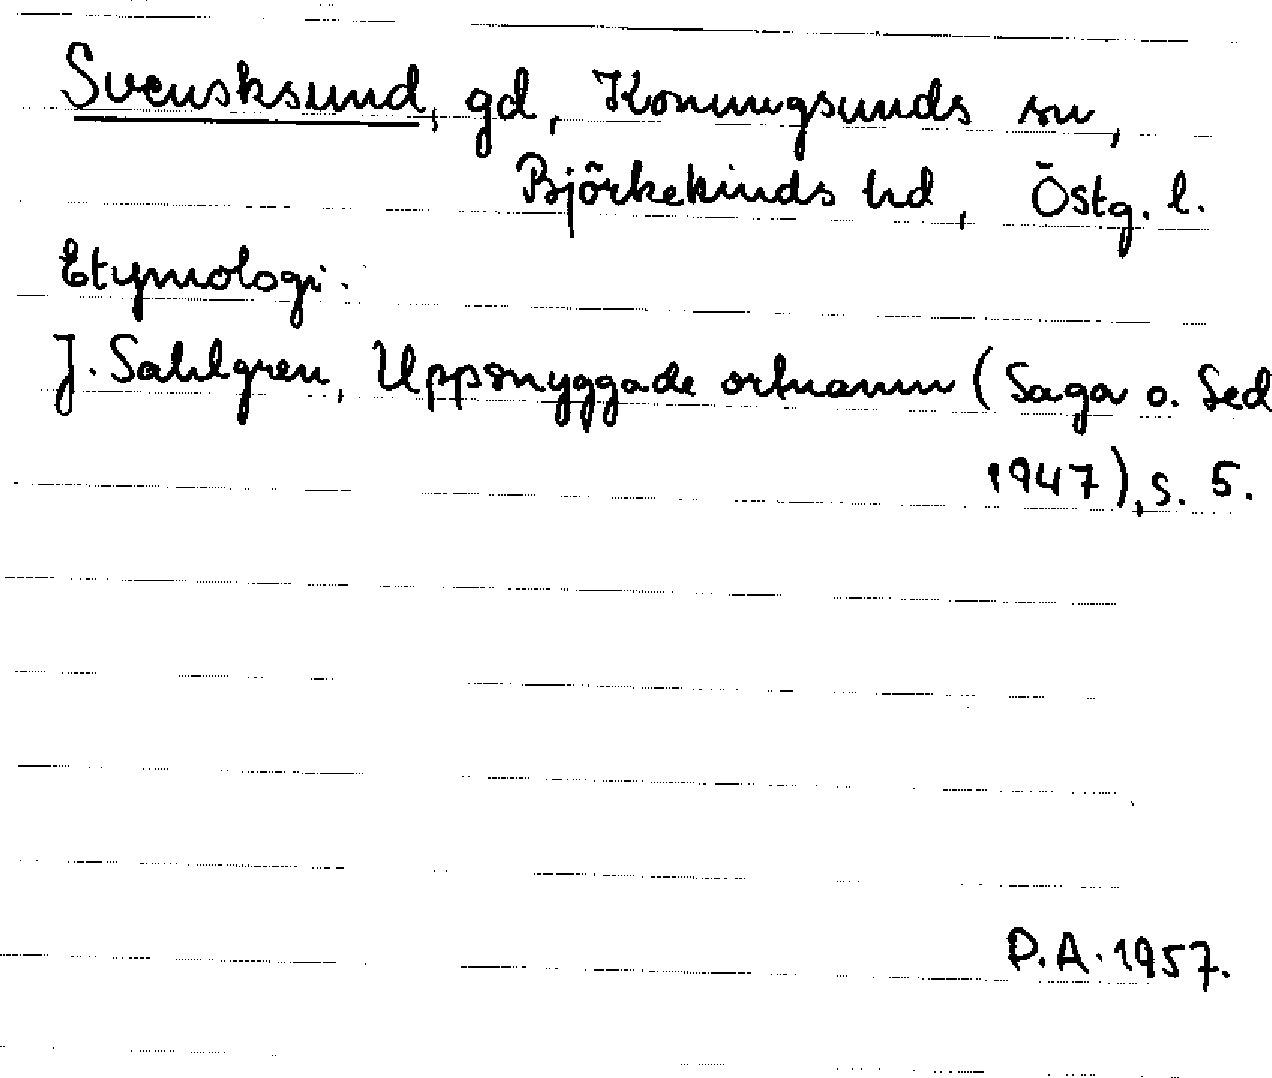 Svensksund, gd, Konungsunds sn,
Björkekinds hd, Östg. l.
Etymologi.
J. Sahlgren, Uppsnyggade ortnamn (Saga o. Sed
1947), s. 5.
P.A. 1957.